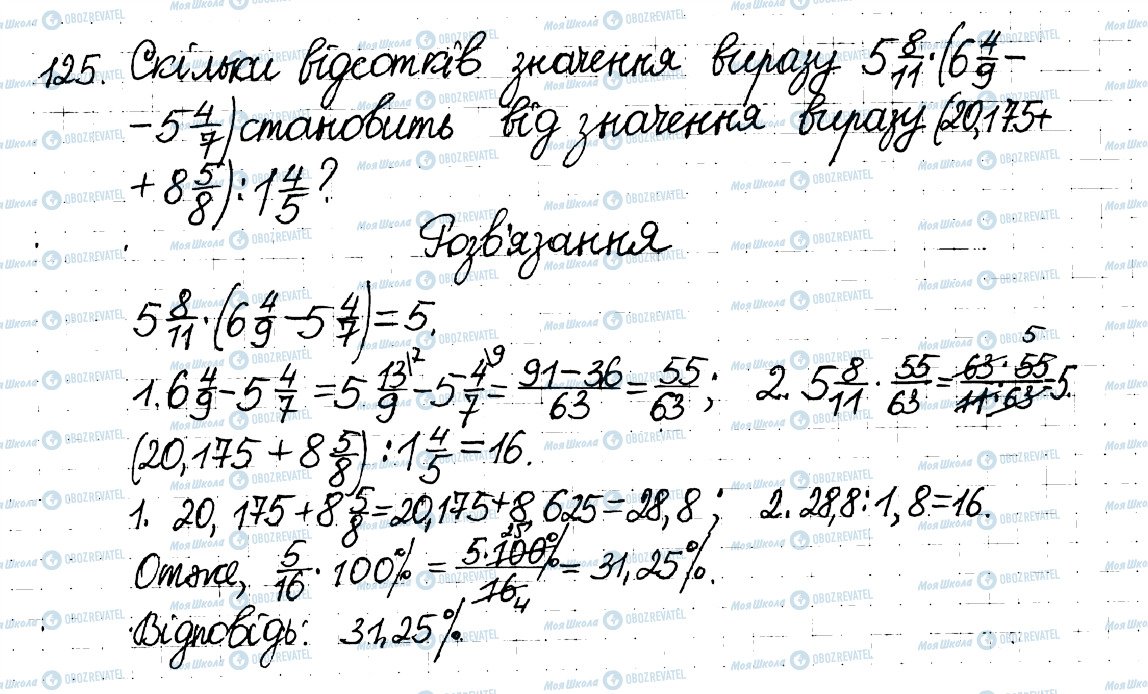 125. Скільки відсотків значення виразу 5 8/11 · (6 4/9 −
− 5 4/7) становить від значення виразу (20,175+
+ 8 5/8) : 1 4/5 ?
Розв'язання
5 8/11 · (6 4/9 − 5 4/7) = 5.
1. 6 4/9 − 5 4/7 = 5 13/9 − 5 4/7 = (91 − 36)/63 = 55/63 ; 2. 5 8/11 · 55/63 = (63 · 55)/(11 · 63) = 5.
(20,175 + 8 5/8) : 1 4/5 = 16.
1. 20,175 + 8 5/8 = 20,175 + 8,625 = 28,8 ; 2. 28,8 : 1,8 = 16.
Отже, 5/16 · 100% = (5 · 100%)/16 = 31,25%.
Відповідь: 31,25%.